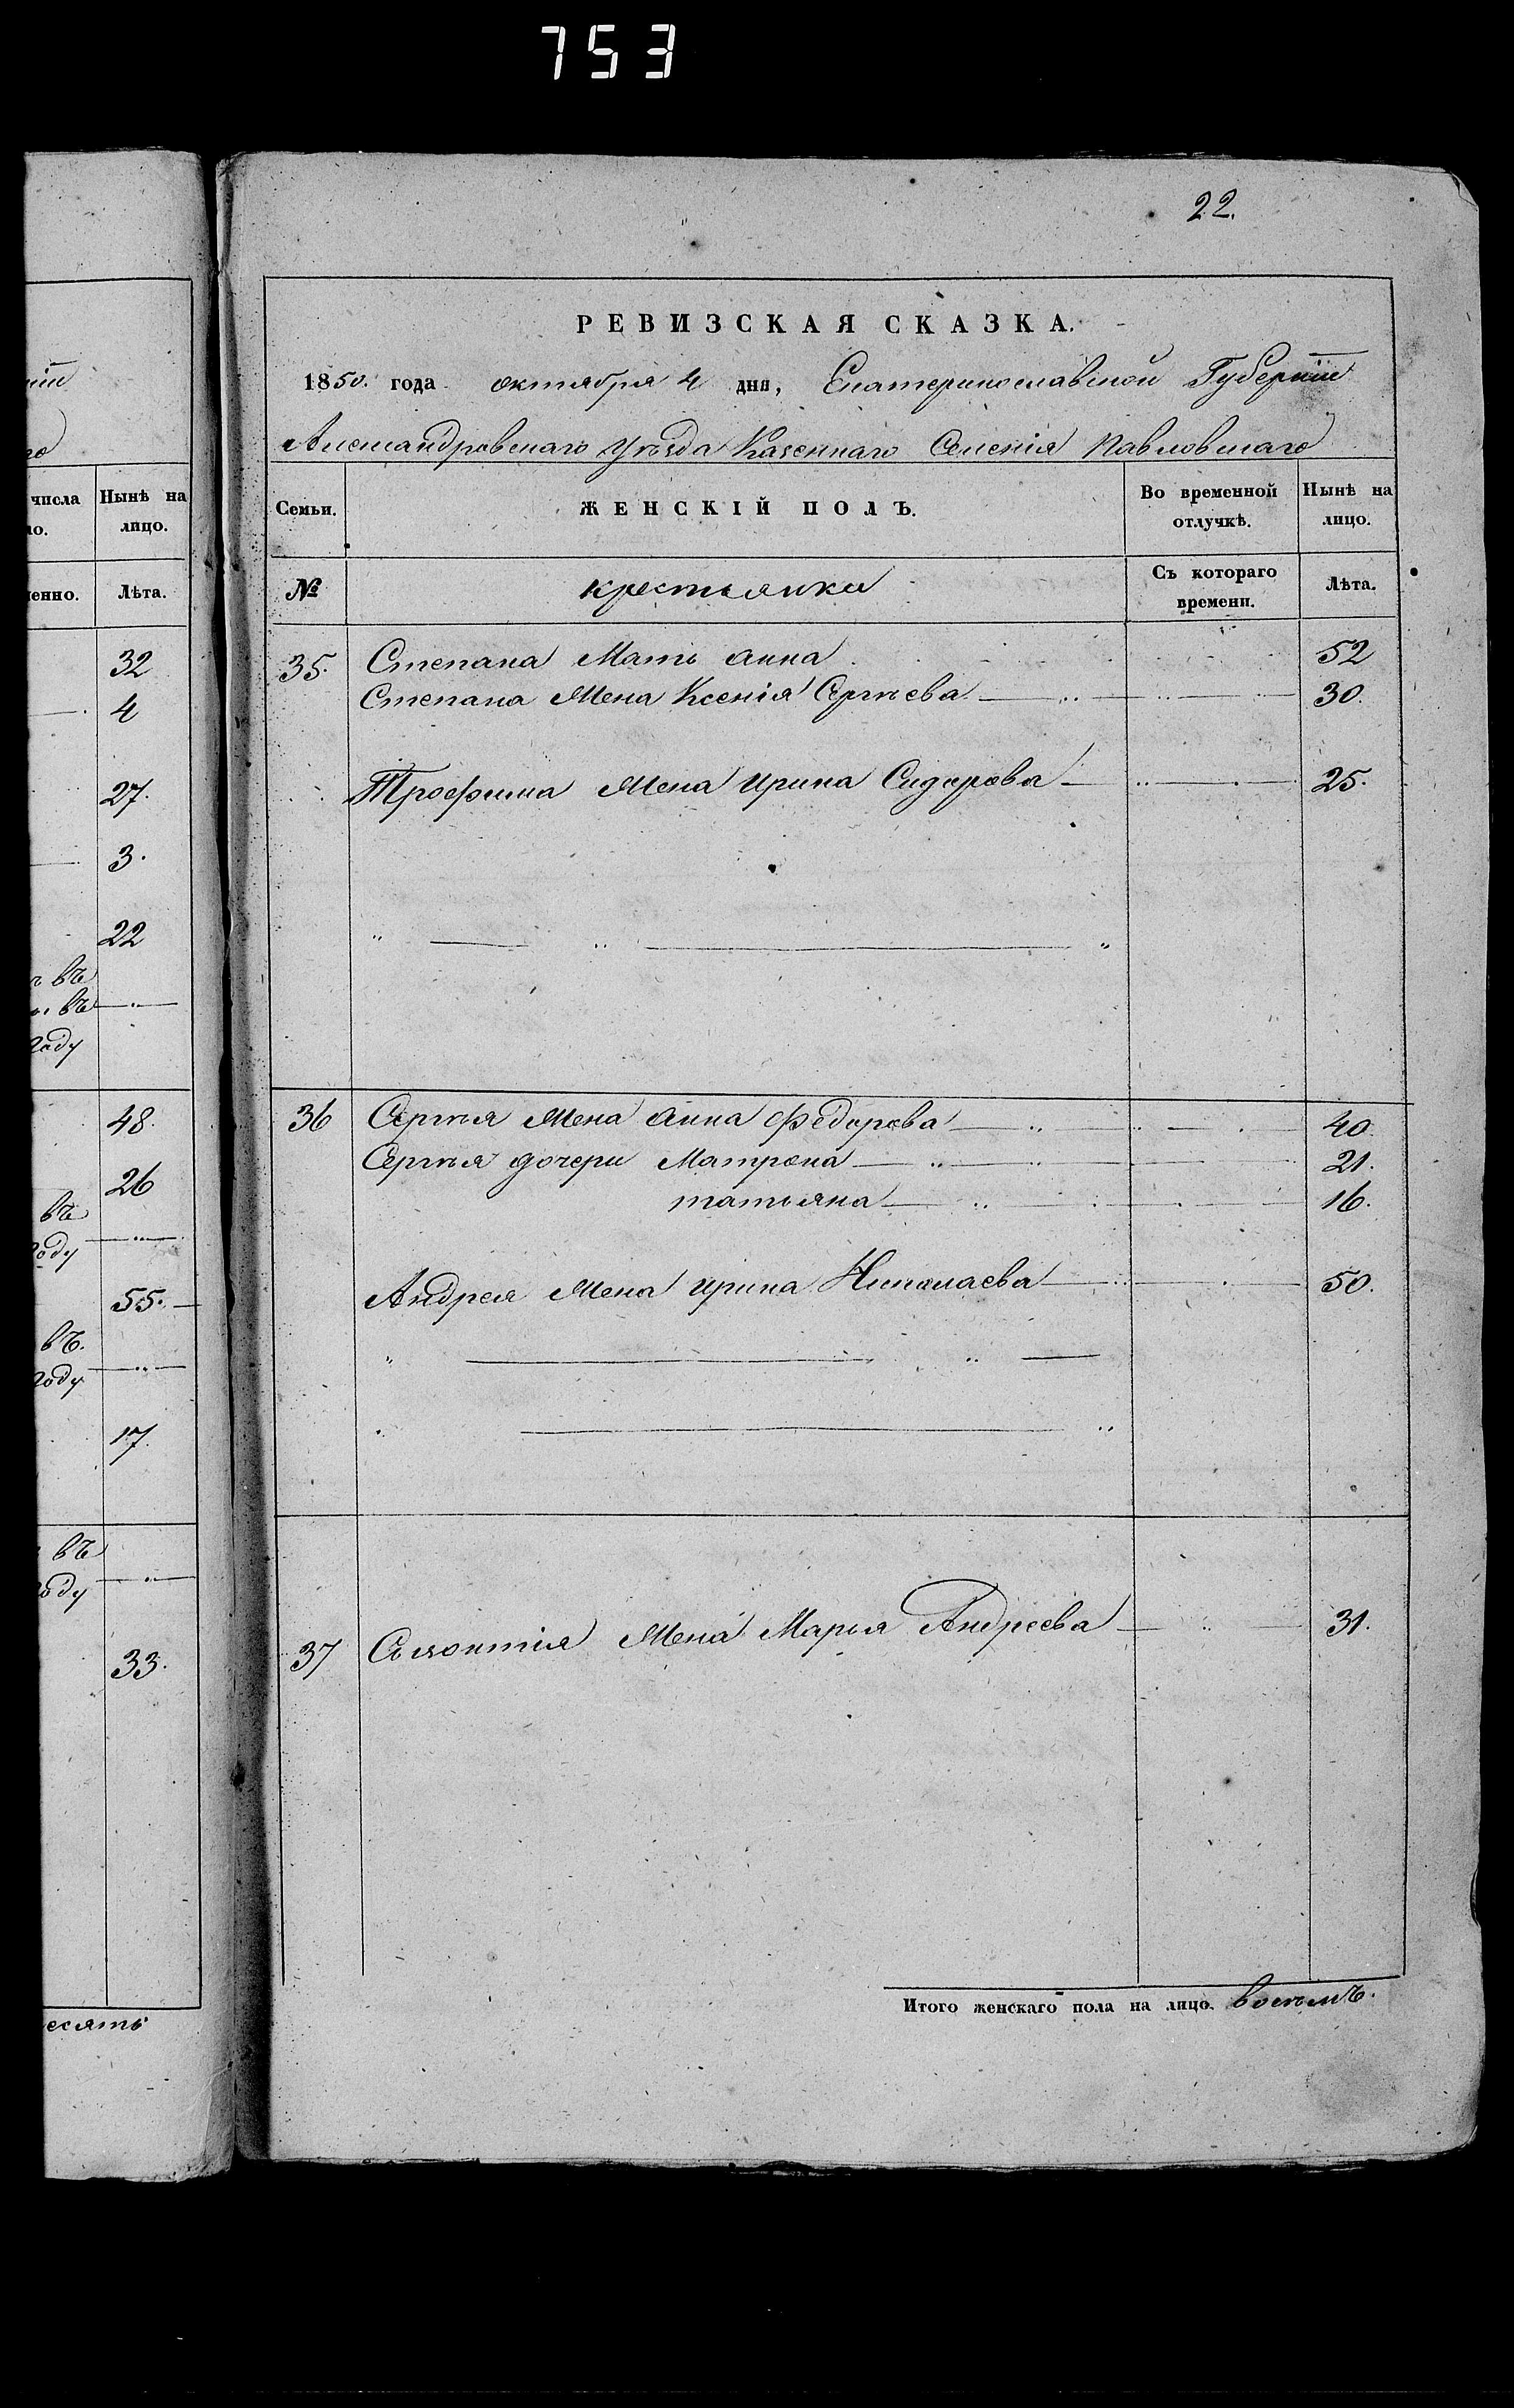 753
22.
РЕВИЗСКАЯ СКАЗКА.
1850. года октября 4 дня, Екатеринославской Губерніи
Александровскаго Уѣзда Казеннаго Селенія Павловскаго
Семьи. ЖЕНСКІЙ ПОЛЪ. Во временной отлучкѣ. Нынѣ на лицо.
№ крестьянки Съ котораго времени. Лѣта.
35. Степана Мать Анна 52
Степана Жена Ксенія Сергѣева 30.
Трофима Жена Ирина Сидорова 25.
36 Сергѣя Жена Анна Федорова 40.
Сергѣя дочери Матрона 21.
татьяна 16.
Андрея Жена Ирина Николаева 50.
37 Жена Марья Андреева 31.
Итого женскаго пола на лицо. восѣмъ.
числа Нынѣ на лицо.
Лѣта.
32
4
27.
3.
22
въ
въ
году
48.
26
въ
году
55.
въ.
году
17.
въ
году
33.